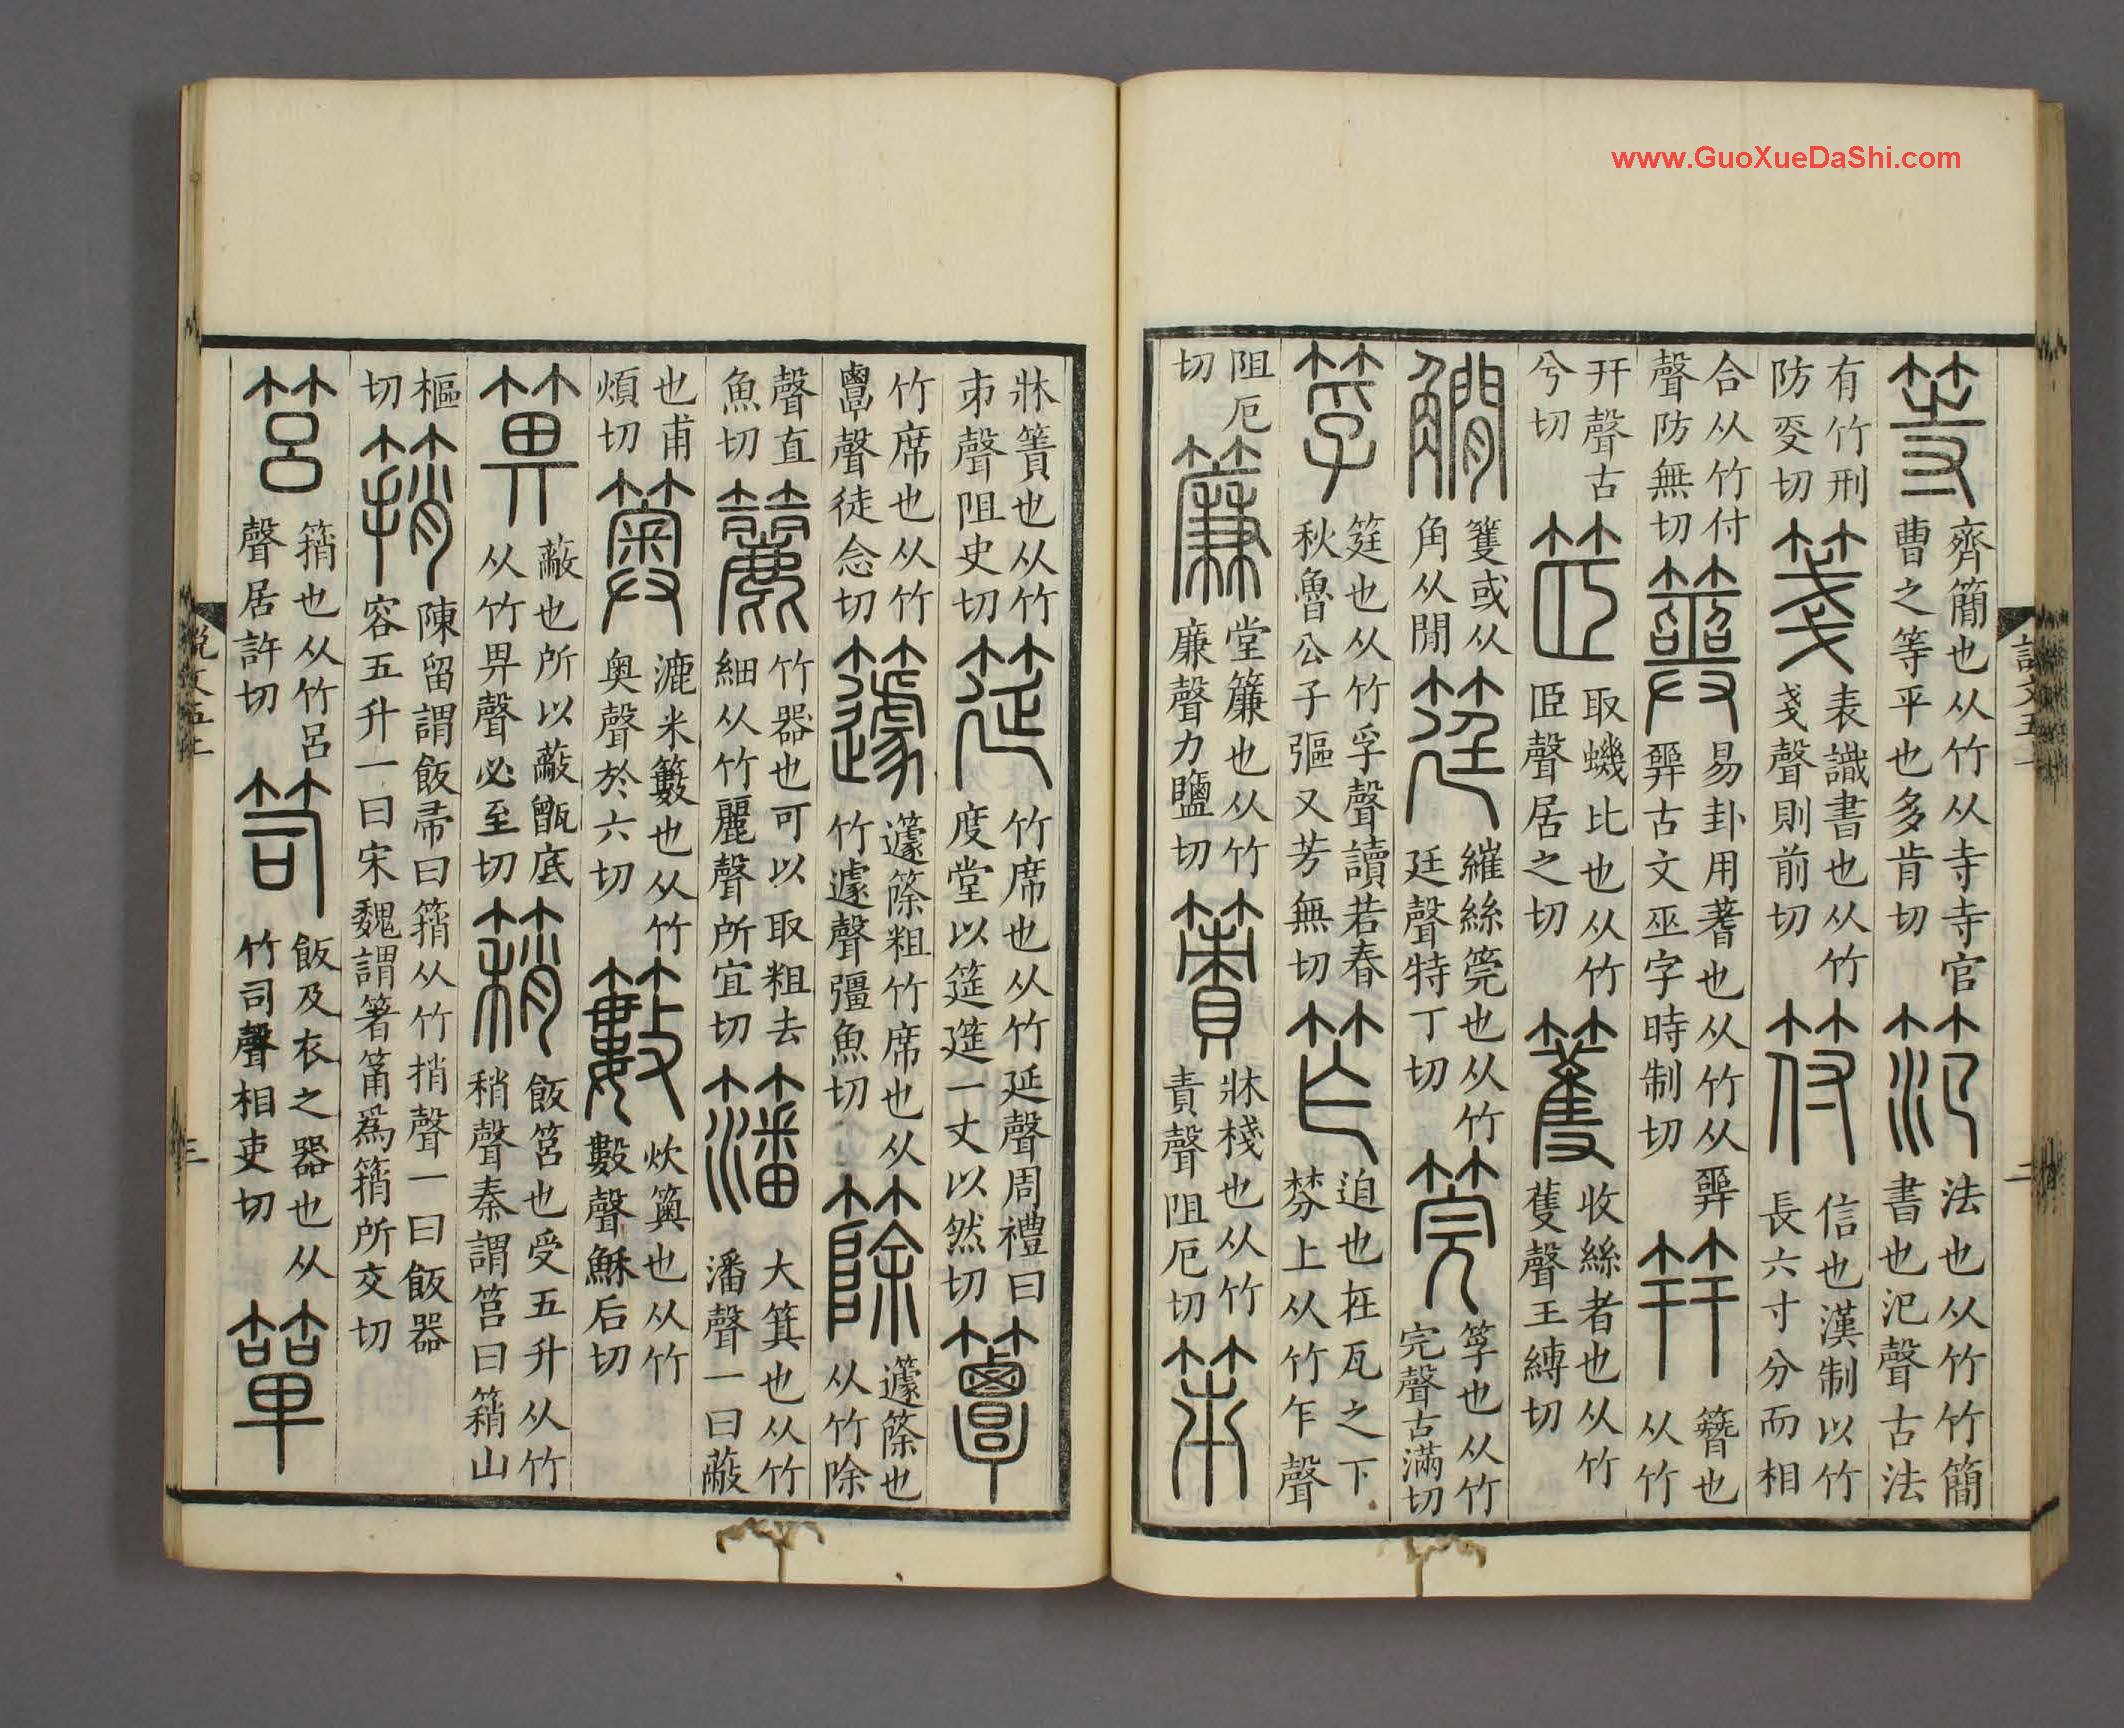 www.GuoXueDaShi.com
等齊簡也从竹从寺寺官曹之等平也多肯切笵法也从竹竹簡書也氾聲古法
有竹刑防㚇切箋表識書也从竹戔聲則前切符信也漢制以竹長六寸分而相
合从竹付聲防無切簭易卦用蓍也从竹从𢍮𢍮古文巫字時制切筓簪也从竹
幵聲古兮切䇫取蟣比也从竹𦣞聲居之切籆收絲者也从竹蒦聲王縛切
䌰籆或从角从閒筳繀絲筦也从竹廷聲特丁切筦筟也从竹完聲古滿切
筟筳也从竹孚聲讀若春秋魯公子彄又芳無切笮迫也在瓦之下棼上从竹乍聲
阻厄切簾堂簾也从竹廉聲力鹽切簀牀棧也从竹責聲阻厄切笫
説文五上
二
牀簀也从竹𠂔聲阻史切筵竹席也从竹延聲周禮曰度堂以筵筵一丈以然切簟
竹席也从竹𪉷聲徒念切籧籧篨粗竹席也从竹遽聲彊魚切篨籧篨也从竹除
聲直魚切籭竹器也可以取粗去細从竹麗聲所宜切籓大箕也从竹潘聲一曰蔽
也甫煩切䉛漉米籔也从竹奧聲於六切籔炊䉛也从竹數聲穌后切
箅蔽也所以蔽甑底从竹畀聲必至切䈰飯筥也受五升从竹稍聲秦謂筥曰䈰山
樞切䈾陳留謂飯帚曰䈾从竹捎聲一曰飯器容五升一曰宋魏謂箸筩爲䈾所交切
筥䈰也从竹呂聲居許切笥飯及衣之器也从竹司聲相吏切簞
説文五上
三